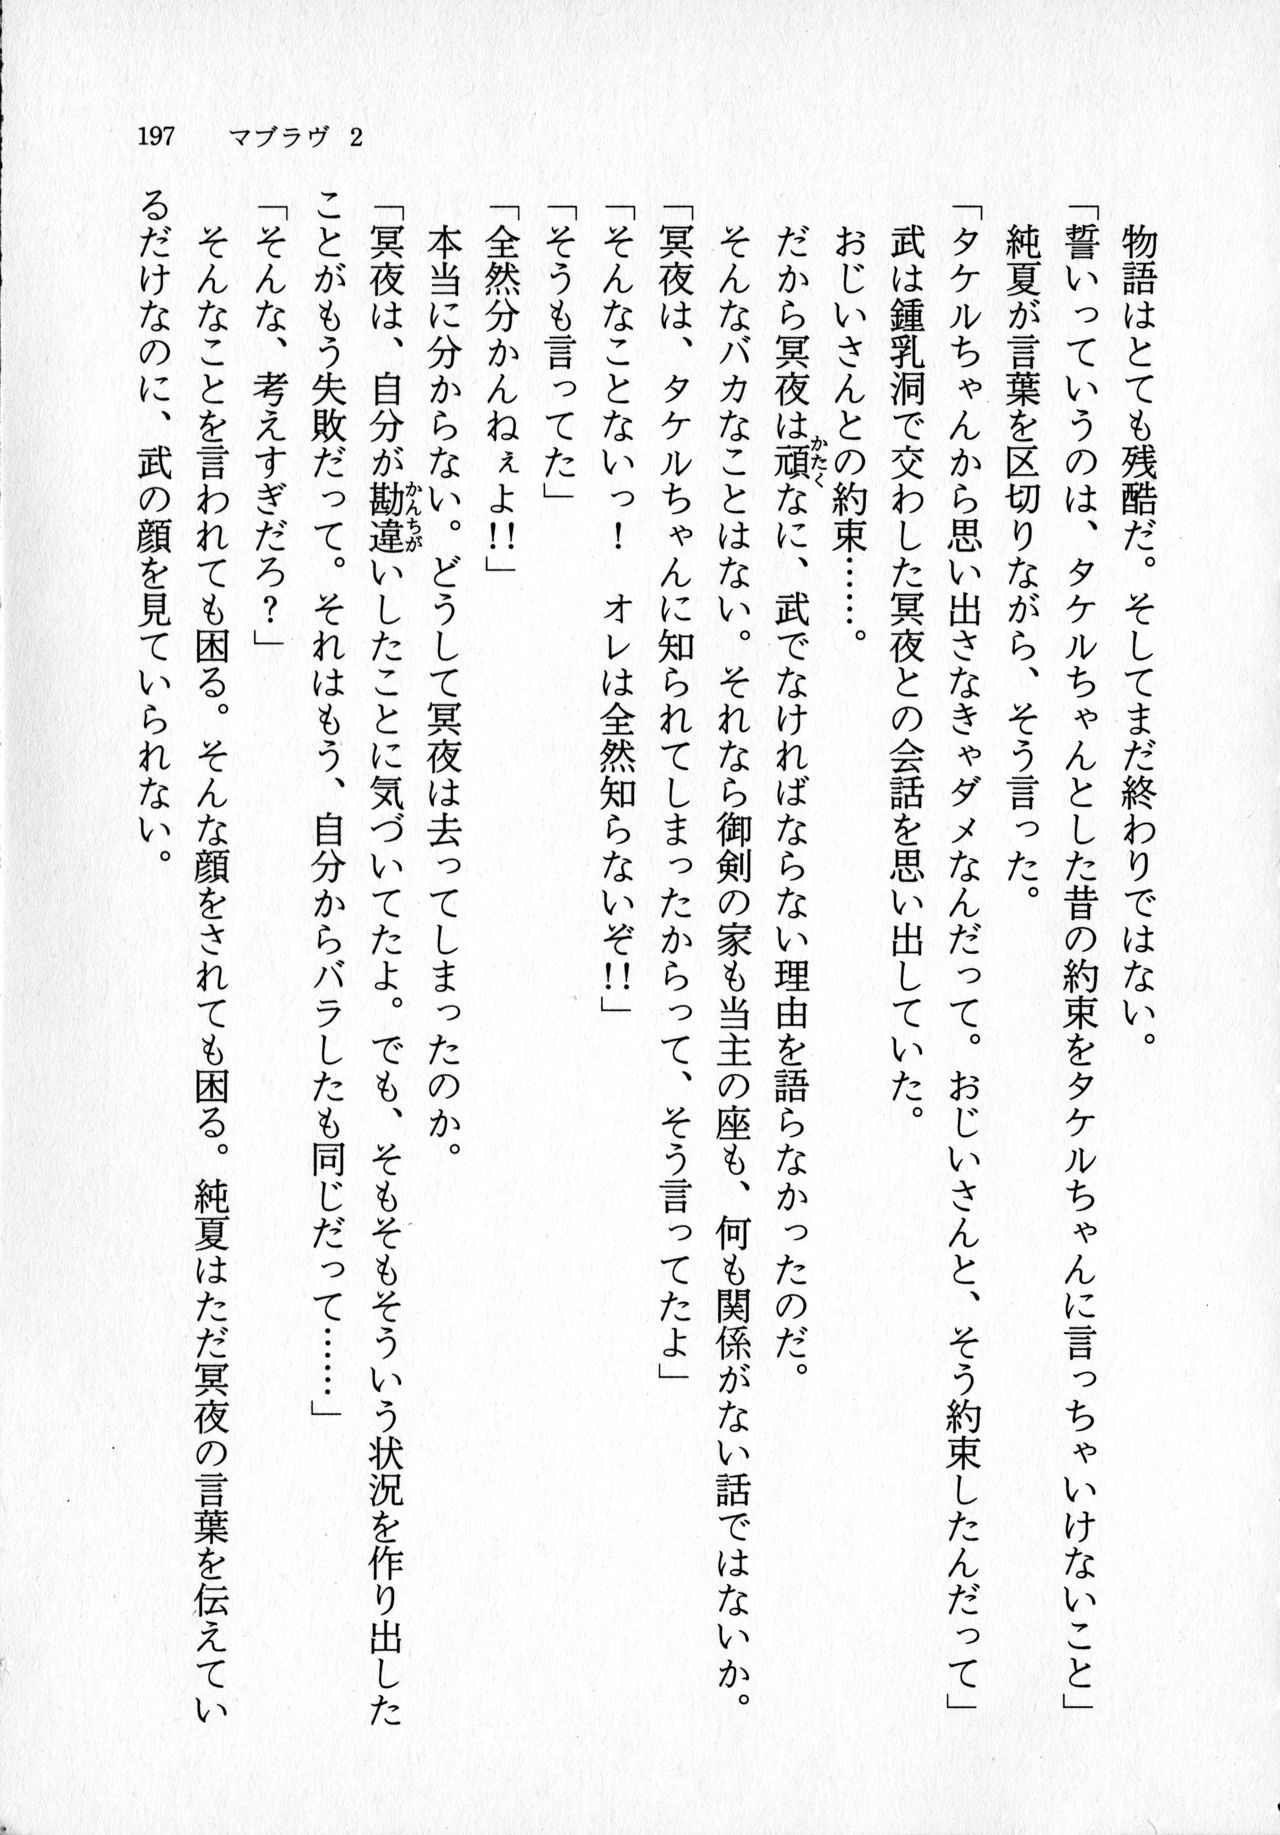 197 マブラヴ 2
物語はとても残酷だ。そしてまだ終わりではない。
「誓いっていうのは、タケルちゃんとした昔の約束をタケルちゃんに言っちゃいけないこと」
純夏が言葉を区切りながら、そう言った。
「タケルちゃんから思い出さなきゃダメなんだって。おじいさんと、そう約束したんだって」
武は鍾乳洞で交わした冥夜との会話を思い出していた。
おじいさんとの約束……。
だから冥夜は頑なに、武でなければならない理由を語らなかったのだ。
そんなバカなことはない。それなら御剣の家も当主の座も、何も関係がない話ではないか。
「冥夜は、タケルちゃんに知られてしまったからって、そう言ってたよ」
「そんなことないっ！　オレは全然知らないぞ!!」
「そうも言ってた」
「全然分かんねぇよ!!」
本当に分からない。どうして冥夜は去ってしまったのか。
「冥夜は、自分が勘違いしたことに気づいてたよ。でも、そもそもそういう状況を作り出した
ことがもう失敗だって。それはもう、自分からバラしたも同じだって……」
「そんな、考えすぎだろ？」
そんなことを言われても困る。そんな顔をされても困る。純夏はただ冥夜の言葉を伝えてい
るだけなのに、武の顔を見ていられない。
かたく
かんちが